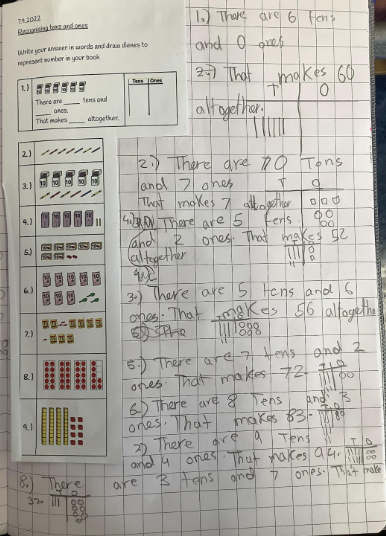 7.9.2022
Recognising tens and ones
Write your answer in words and draw dienes to
represent number in your book
1.)
Tens Ones
There are ____ tens and
____ ones.
That makes ____ altogether.
2.)
3.)
10 10 10 10 10
4.)
5.)
6.)
7.)
8.)
9.)
1.) There are 6 tens
and 0 ones
2.) That makes 60
T O
altogether.
2.) There are 0 Tens
and 7 ones T O
That makes 7 altogether
4.) There are 5 tens
and 2 ones. That makes 52
altogether
3.) There are 5 tens and 6
ones. That makes 56 altogether
5.) There are 7 tens and 2
ones. That makes 72.
6.) There are 8 Tens and 3
ones. That makes 83.
7.) There are 9 Tens T O
and 4 ones. That makes 94.
8.) There are 3 tens and 7 ones. That make
37.